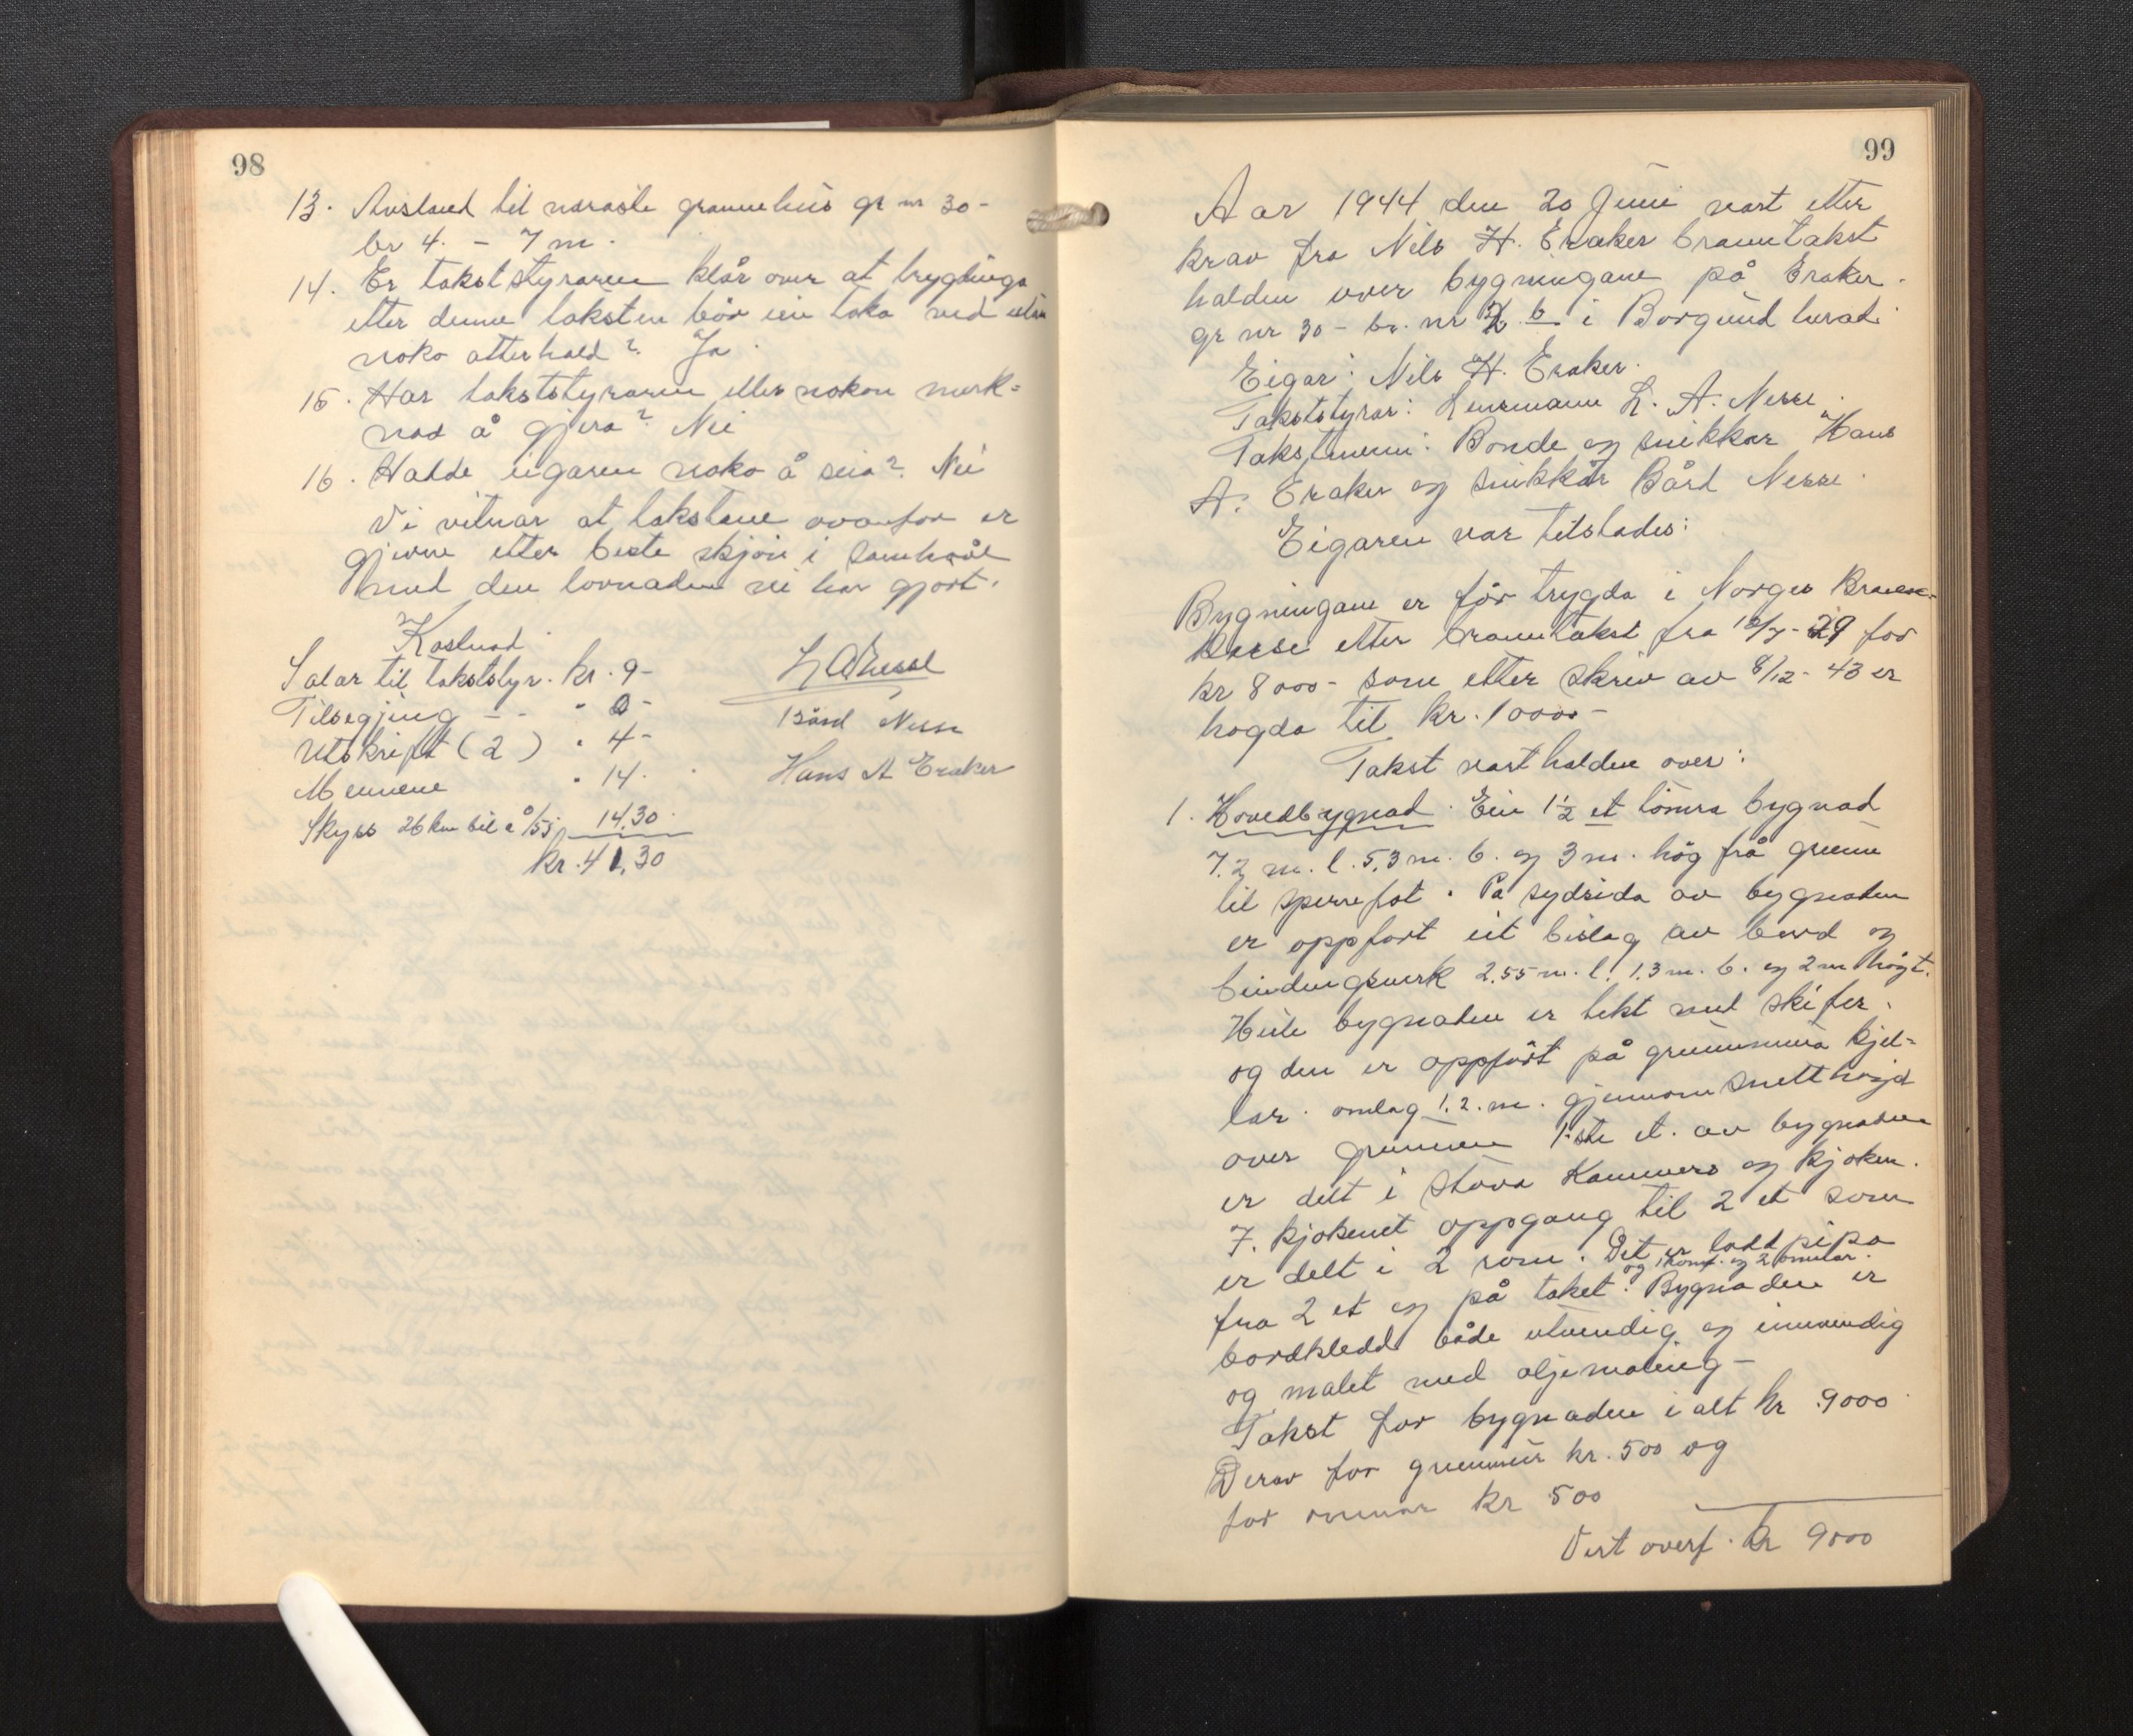 98
13. Avstand til næraste grannehus gr nr 30-
br 4. - 7 m.
14. Er takststyraren klår over at trygdinga
etter denne taksten bör ein taka ved utan
noko atterhald? Ja.
15. Har takststyraren eller nokon merk-
nad å gjera? Nei
16. Hadde eigaren noko å seia? Nei
Vi vitnar at takstane ovanfor er
gjevne etter beste skjön i samhøve
med den lovnaden vi har gjort.
Kostnad
Salar til takststyr. kr. 9-
Tilsegjing - - " 0-
Utskrift (2) " 4-
Mennene " 14.
Skyss 26 km bil å /55 14.30
kr. 41,30
L A Nesse
Bård Nesse
Hans A Eraker
99
Aar 1944 den 20 Juni vart etter
krav fra Nils H. Eraker branntakst
halden over bygningane på Eraker.
gr nr 30 - br. nr 6 i Borgund herad.
Eigar: Nils H. Eraker.
Takststyrar: Lensmann L. A. Nesse.
Takstmenn: Bonde og snikkar Hans
A. Eraker og snikkar Bård Nesse.
Eigaren var tilstades:
Bygningane er för trygda i Norges Brann-
kasse etter branntakst fra 12/7-29 for
kr 8000- som etter skriv av 8/12-43 er
hogda til kr. 10000-
Takst vart halden over:
1. Hovedbygnad. Ein 1½ et tömra bygnad
7.2 m. l. 5,3 m. b. og 3 m. hög frå grunn
til sperrefot. På sydsida av bygnaden
er oppfört eit bislag av bord og
bindingsverk 2.55 m. l. 1.3 m. b. og 2 m högt.
Heile bygnaden er tekt med skifer.
og den er oppfört på grunnmura kjel-
lar. omlag 1.2. m. gjennomsnetthögd
over grunnen 1ste et. av bygnaden
er delt i stova Kammers og kjöken.
F. kjökenet oppgang til 2 et som
er delt i 2 rom. Det er ladd pipa
og 1 komf. og 2 omnar.
fra 2 et og på taket. Bygnaden er
bordkledd både utvendig og innvendig
og malet med oljemaling-
Takst for bygnaden i alt kr 9000
Derav for grunnmur kr. 500 og
for omnar kr 500
Vert overf. kr 9000